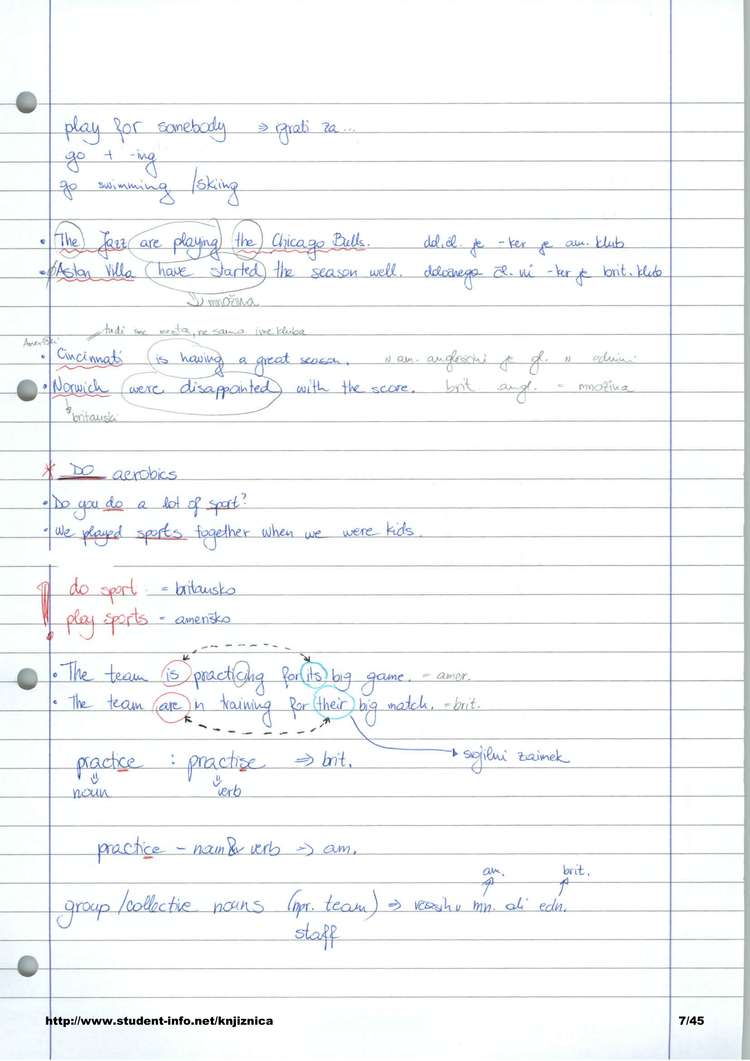 play for somebody ⇒ igrati za...
go + -ing
go swimming /skiing
• The Jazz are playing the Chicago Bulls. dol.čl. je - ker je am. klub
• Aston Villa have started the season well. določnega čl. ni - ker je brit. klub
⇓ množina
tudi ime mesta, ne samo ime kluba
Ameriški
• Cincinnati is having a great season. v am. angleščini je gl. v ednini
• Norwich were disappointed with the score. brit angl. = množina
britanski
* DO aerobics
• Do you do a lot of sport?
• We played sports together when we were kids.
do sport = britansko
play sports - ameriško
• The team is practicing for its big game. = amer.
• The team are in training for their big match. = brit.
practice : practise ⇒ brit. svojilni zaimek
noun verb
practice - noun & verb ⇒ am.
am. brit.
group /collective nouns (npr. team) ⇒ mn. ali edn.
staff
http://www.student-info.net/knjiznica 7/45